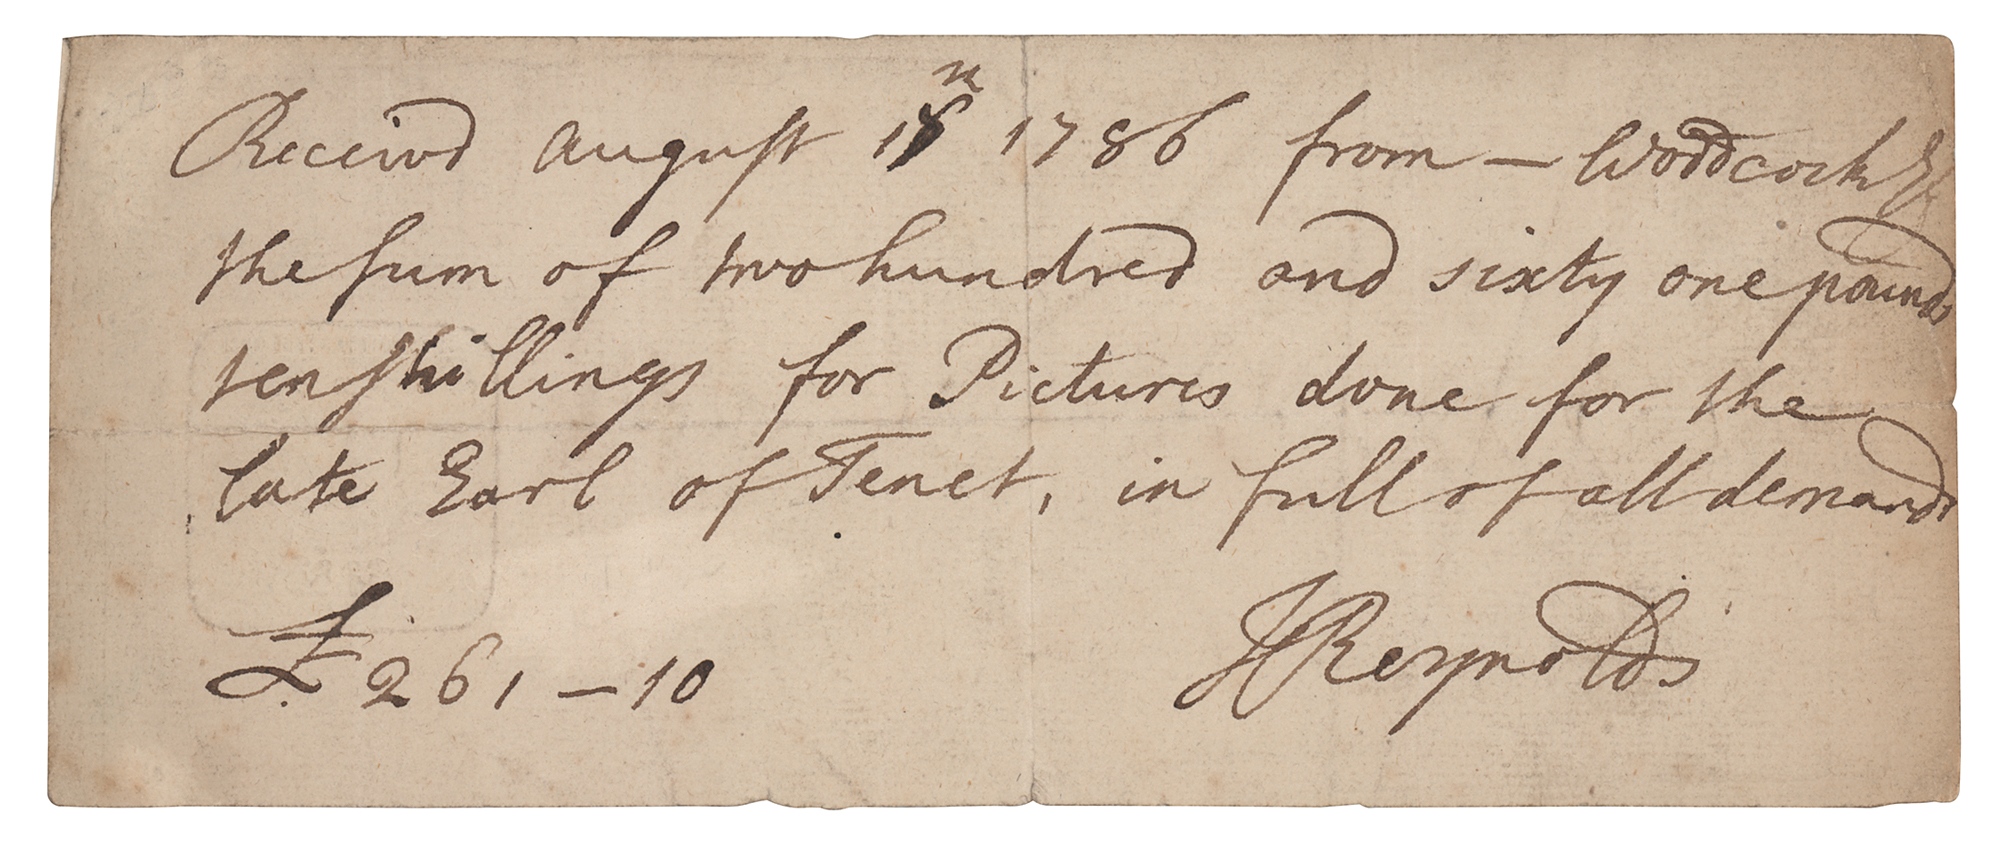 Receivd August 1 1786 from — Woodcock Esq
the sum of two hundred and sixty one pounds
ten shillings for Pictures done for the
late Earl of Tenet, in full of all demands
£ 261 — 10 JReynolds